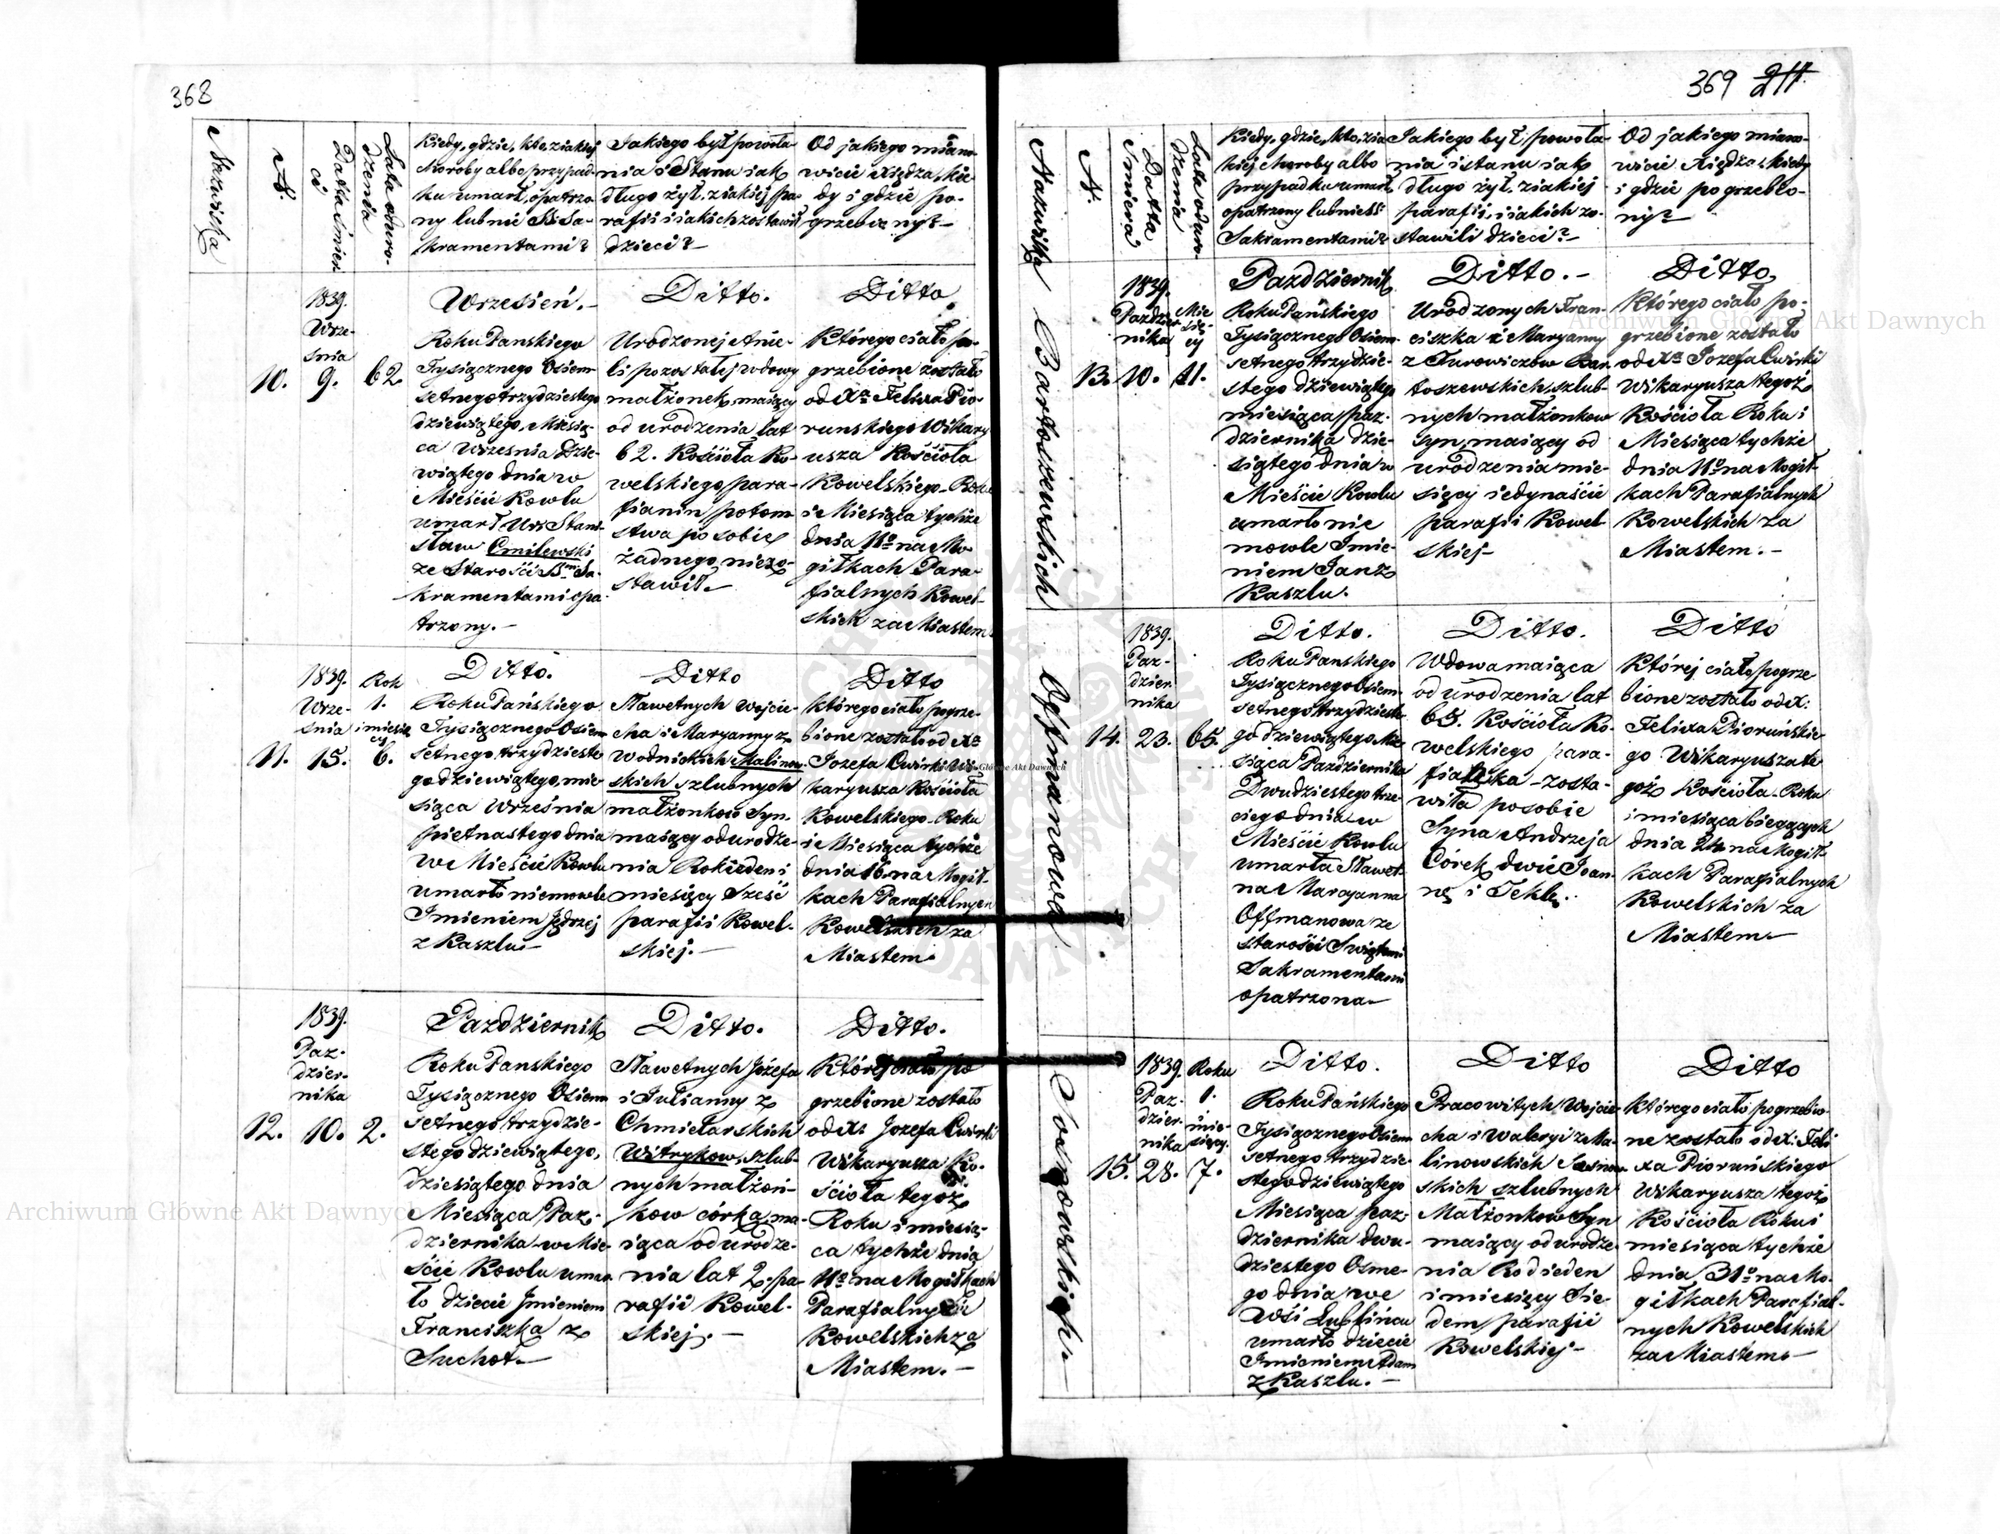 368
Nazwiska
N.
Datta śmier
ci
Lata o uro-
dzenia
Kiedy, gdzie, kto, z iakiej
choroby albo przypad-
ku umarł, opatrzo-
ny lub nie SS. Sa-
kramentami?
Jakiego był powoła-
nia i Stanu iak
długo żył, z iakiej pa-
rafii i iakich zostawił
dzieci?-
Od jakiego miano-
wicie Xiędza, kie
dy i gdzie po-
grzebiony?-
1839.
Wrze-
śnia
10. 9. 62.
Wrzesień.-
Roku Panskiego
Tysiącznego Osiem-
setnego trzydziestego
dziewiątego, Miesią-
ca Wrzesnia Dzie-
wiątego dnia w
Mieście Kowlu
umarł Ur: Stani-
sław Cmilewski
ze Starości SSmi Sa-
kramentami opa-
trzony.-
Ditto.
Urodzonej Anie-
li pozostałej wdowy
małżonek, maiący
od urodzenia lat
62. Kościoła Ko-
welskiego para-
fianin potom-
stwa po sobie
żadnego niezo-
stawił.-
Ditto.
Którego ciało po-
grzebione zostało
od Xa Felixa Pio-
runskiego Wikary
usza Kościoła
Kowelskiego - Roku
i Miesiąca tychże
dnia 11o na Mo-
giłkach Para-
fialnych Kowel-
skich za Miastem.
1839.
Wrze-
śnia
Rok
1.
i miesię
cy
11. 15. 6.
Ditto.
Roku Pańskiego
Tysiącznego Osiem
setnego, trzydzieste
go dziewiątego, mie-
siąca Września
piętnastego dnia
w Mieście Kowlu
umarło niemowle
Imieniem Jędrzej
z Kaszlu.-
Ditto
Sławetnych Wojcie-
cha i Maryanny z
Wodnickich Malinow-
skich szlubnych
małżonków Syn,
maiący od urodze-
nia Rok ieden i
miesięcy Sześć
parafii Kowel-
skiej.-
Ditto
którego ciało pogrze-
bione zostało od Xa
Jozefa Cwirki Wi-
karyusza Kościoła
Kowelskiego - Roku
i Miesiąca tychże
dnia 16 na Mogił-
kach Parafialnych
Kowelskich za
Miastem.
1839.
Paz-
dzier-
nika
12. 10. 2.
Pazdziernik
Roku Panskiego
Tysiącznego Osiem
setnego trzydzie-
stego dziewiątego,
dziesiątego dnia
Miesiąca Paz-
dziernika w Mie-
ście Kowlu umar-
ło dziecie Imieniem
Franciszka z
Suchot.-
Ditto.
Sławetnych Józefa
i Julianny z
Chmielarskich
Witrykow, szlub-
nych małżon-
kow córka, ma-
iąca od urodze-
nia lat 2. pa-
rafii Kowel-
skiej.-
Ditto.
Której ciało po
grzebione zostało
od X: Jozefa Cwirki
Wikaryusza Ko-
ścioła tegoż
Roku i miesią-
ca tychże dnia
11o na Mogiłkach
Parafialnych
Kowelskich za
Miastem.-
369 211.
Nazwiska
N.
Datta
śmierci
Lata o uro-
dzenia
Kiedy, gdzie, kto, z ia
kiej choroby albo
przypadku umarł
opatrzony lub nie SS:
Sakramentami?
Jakiego był powoła-
nia i stanu iak
długo żył, z iakiej
parafii, i iakich zo-
stawili dzieci?-
Od jakiego miano-
wicie Xiędza, kiedy
i gdzie pogrzebio-
ny?
Bartoszewskich
1839.
Pazdzier
nika
Mie
się-
cy
13. 10. 11.
Pazdziernik
Roku Pańskiego
Tysiącznego Osiem-
setnego trzydzie-
stego dziewiątego
miesiąca paz-
dziernika dzie-
siątego dnia w
Mieście Kowlu
umarło nie
mowle Imie-
niem Jan z
Kaszlu.
Ditto.-
Urodzonych Fran-
ciszka i Maryanny
z Turowiczów Bar
toszewskich, szlub-
nych małżonkow
Syn, maiący od
urodzenia mie-
sięcy iedynaście
parafii Kowel
skiej-
Ditto,
Którego ciało po-
grzebione zostało
od Xa Jozefa Cwirki
Wikaryusza tegoż
Kościoła Roku i
Miesiąca tychże
dnia 11o na Mogił-
kach Parafialnych
Kowelskich za
Miastem.-
Offmanowa
1839.
Paz-
dzier
nika
14. 23. 65.
Ditto.
Roku Panskiego
Tysiącznego Osiem-
setnego trzydzieste
go dziewiątego Mie
siąca Pazdziernika
Dwudziestego trze
ciego dnia w
Mieście Kowlu
umarła Sławet-
na Maryanna
Offmanowa ze
starości Swiętemi
Sakramentami
opatrzona-
Ditto.
Wdowa maiąca
od urodzenia lat
65. Kościoła Ko-
welskiego para-
fianka - zosta-
wiła po sobie
Syna Andrzeja
Córek dwie Joan-
nę i Teklę.
Ditto
Której ciało pogrze
bione zostało od X:
Felixa Piorunskie-
go Wikaryusza te
goż Kościoła - Roku
i miesiąca bieżących
dnia 24 na Mogił-
kach Parafialnych
Kowelskich za
Miastem-
Sosnowskich.
1839.
Paz-
dzier-
nika
Roku
1.
mie-
sięcy.
15. 28. 7.
Ditto.
Roku Pańskiego
Tysiącznego Osiem
setnego trzydzie-
stego dziewiątego
Miesiąca paz-
dziernika dwu-
dziestego Osme-
go dnia we
Wśi Lublińcu
umarło dziecie
Imieniem Adam
z Kaszlu.-
Ditto
Pracowitych Wojcie-
cha i Waleryi z Ma-
linowskich Sosnow-
skich szlubnych
Małżonkow Syn
maiący od urodze-
nia Rok ieden
i miesięcy Sie-
dem parafii
Kowelskiej-
Ditto
którego ciało pogrzebio-
ne zostało od X: Feli
xa Pioruńskiego
Wikaryusza tegoż
Kościoła Roku i
miesiąca tychże
dnia 31o na Mo-
giłkach Parafial-
nych Kowelskich
za Miastem-
Archiwum Główne Akt Dawnych
Archiwum Główne Akt Dawnych
Archiwum Główne Akt Dawnych